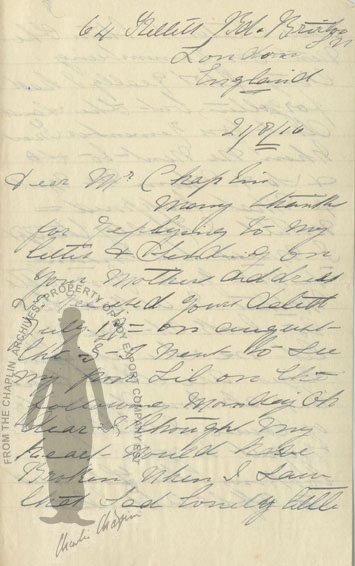 64 Kellett Rd. Brixton
London
England
21/8/16
Dear Mr Chaplin
Many thanks
for replying to my
letter & sending on
your Mothers address
I received yours dated
July 12= on august
the I went to see
my poor Lil on the
following Monday Oh
dear I thought my
heart would have
Broken When I saw
that sad lonely little
FROM THE CHAPLIN ARCHIVES - PROPERTY OF ROY EXPORT COMPANY EST.
Charlie Chaplin